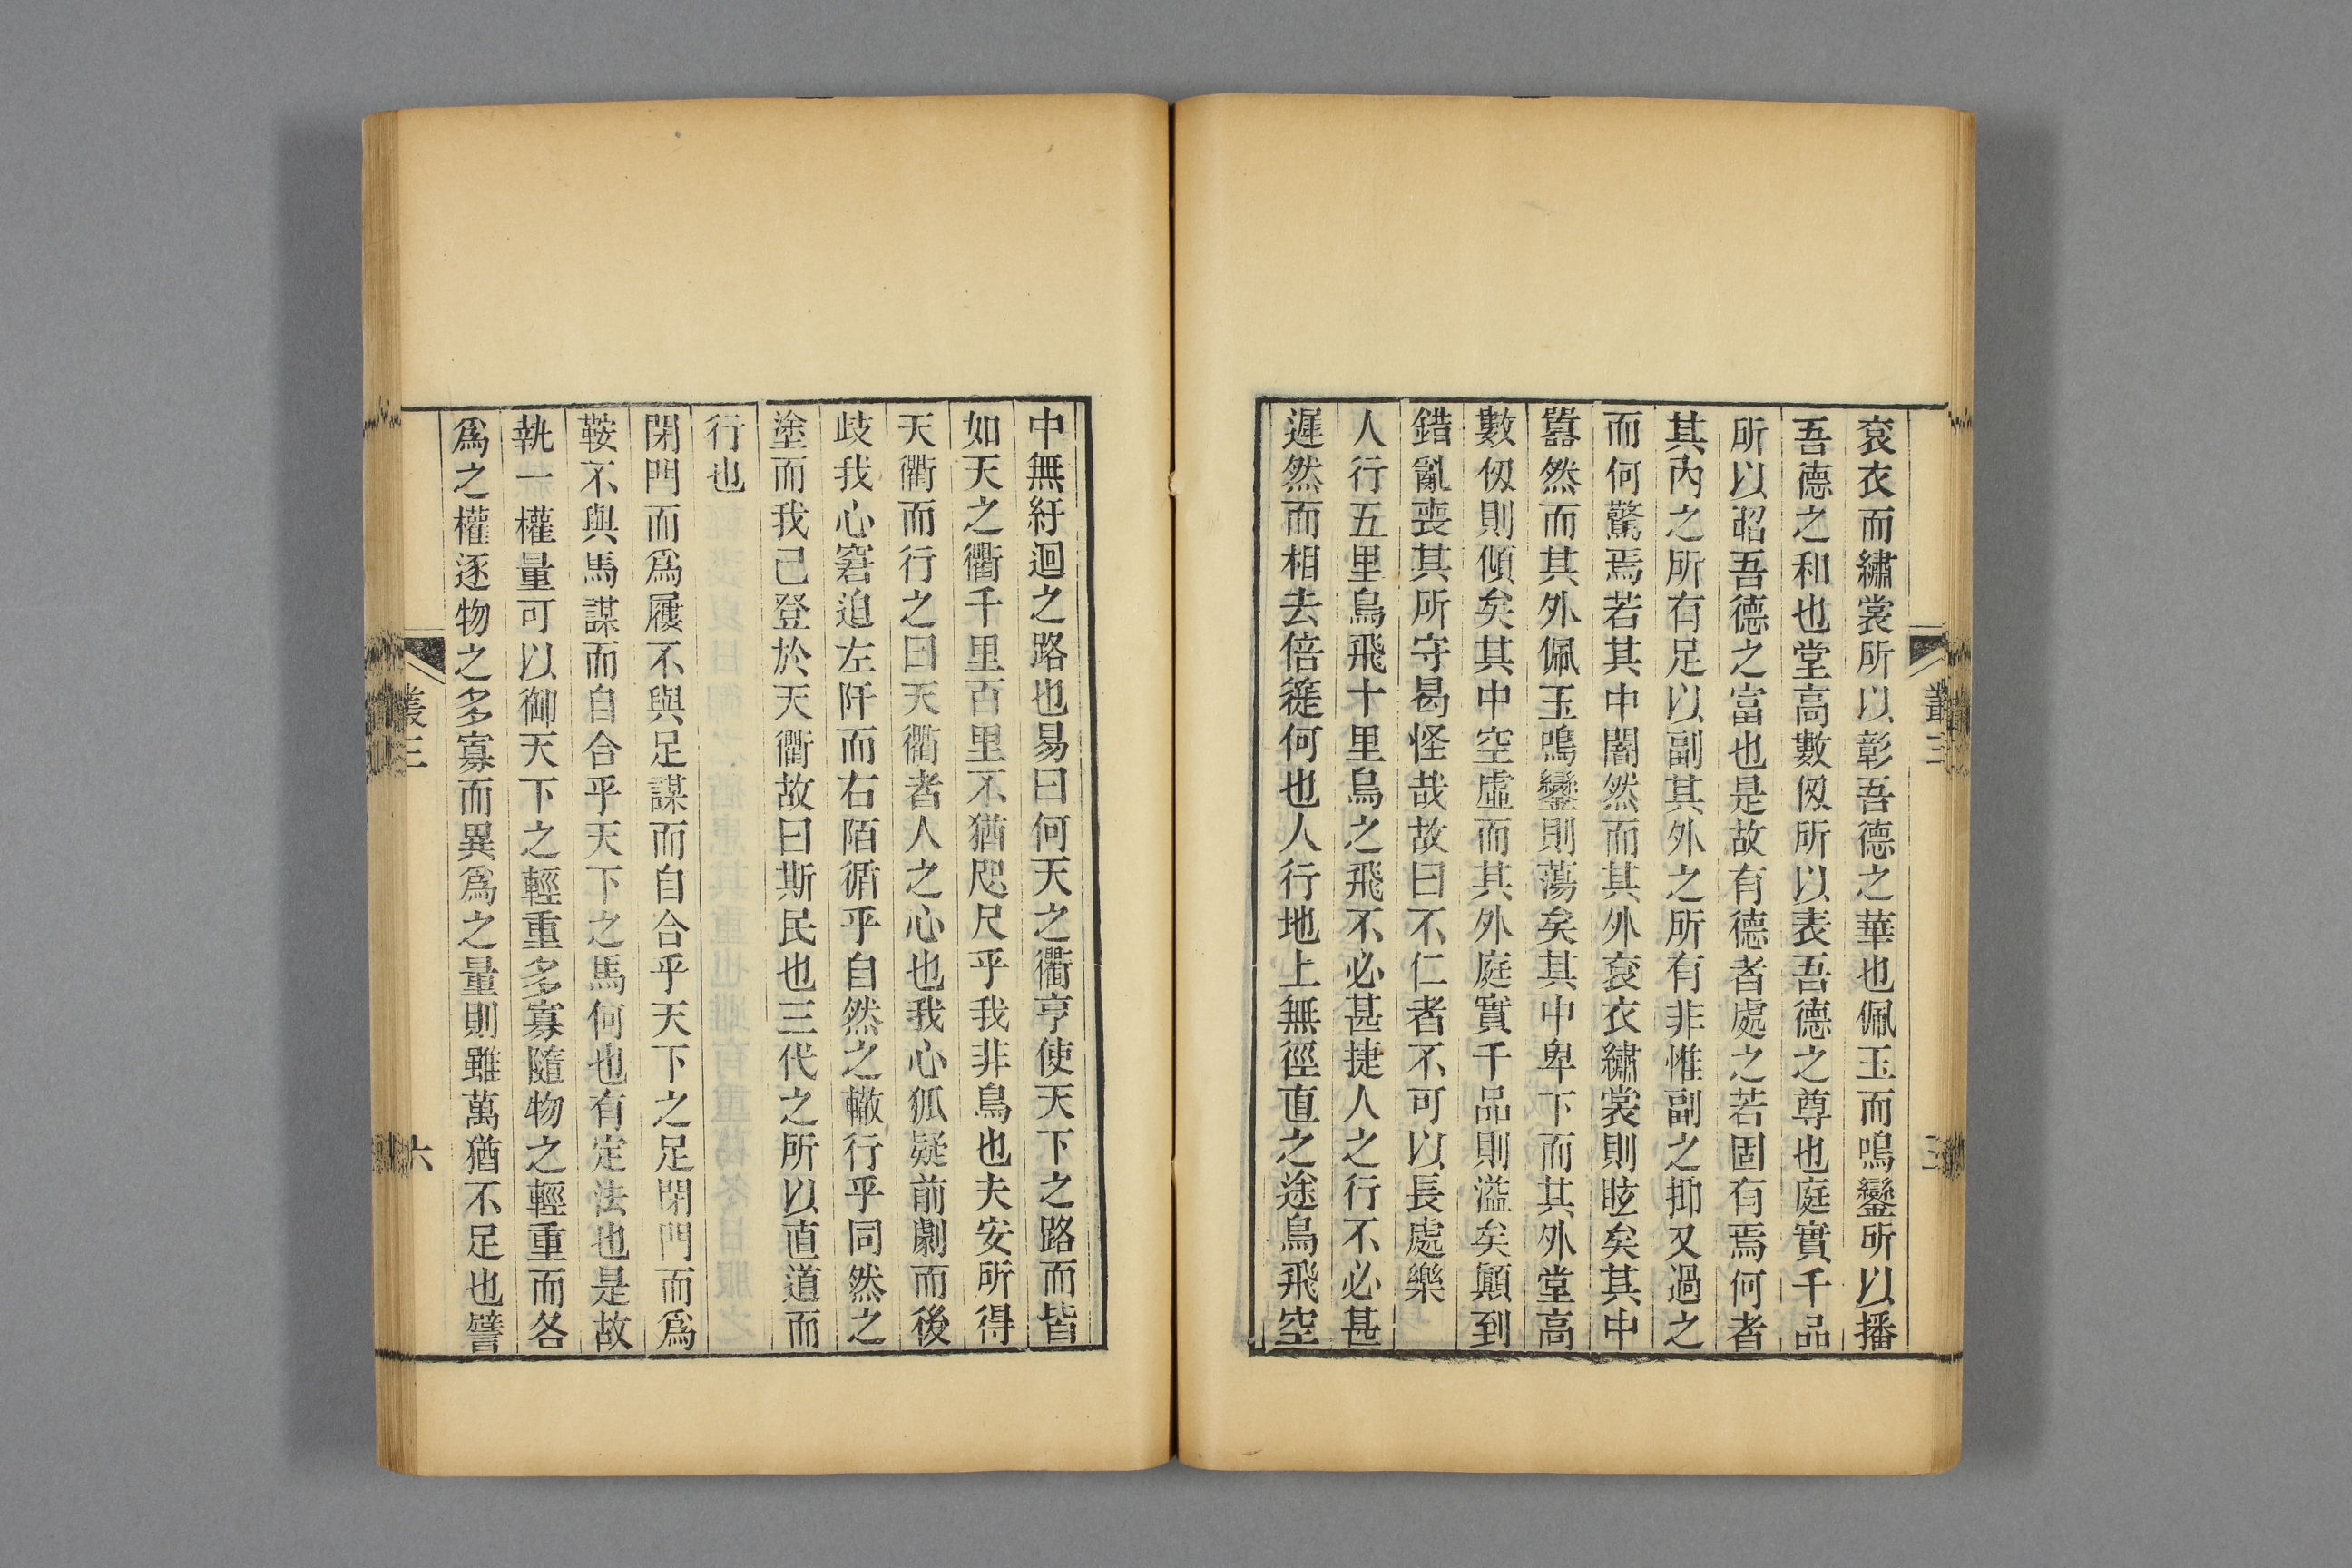 袞衣而繡裳所以彰吾德之華也佩玉而鳴鑾所以播
吾德之和也堂高數仭所以表吾德之尊也庭實千品
所以昭吾德之富也是故有德者處之若固有焉何者
其內之所有足以副其外之所有非惟副之抑又過之
而何驚焉若其中闇然而其外袞衣繡裳則眩矣其中
囂然而其外佩玉鳴鑾則蕩矣其中卑下而其外堂高
數仭則傾矣其中空虛而其外庭實千品則溢矣顚到
錯亂喪其所守曷怪哉故曰不仁者不可以長處樂
人行五里鳥飛十里鳥之飛不必甚捷人之行不必甚
遲然而相去倍蓰何也人行地上無徑直之途鳥飛空
叢三
中無紆迴之路也易曰何天之衢亨使天下之路而皆
如天之衢千里百里不猶咫尺乎我非鳥也夫安所得
天衢而行之曰天衢者人之心也我心狐疑前劇而後
歧我心窘迫左阡而右陌循乎自然之轍行乎同然之
塗而我已登於天衢故曰斯民也三代之所以直道而
行也
閉門而爲屨不與足謀而自合乎天下之足閉門而爲
鞍不與馬謀而自合乎天下之馬何也有定法也是故
執一權量可以御天下之輕重多寡隨物之輕重而各
爲之權逐物之多寡而異爲之量則雖萬猶不足也譬
叢三
六